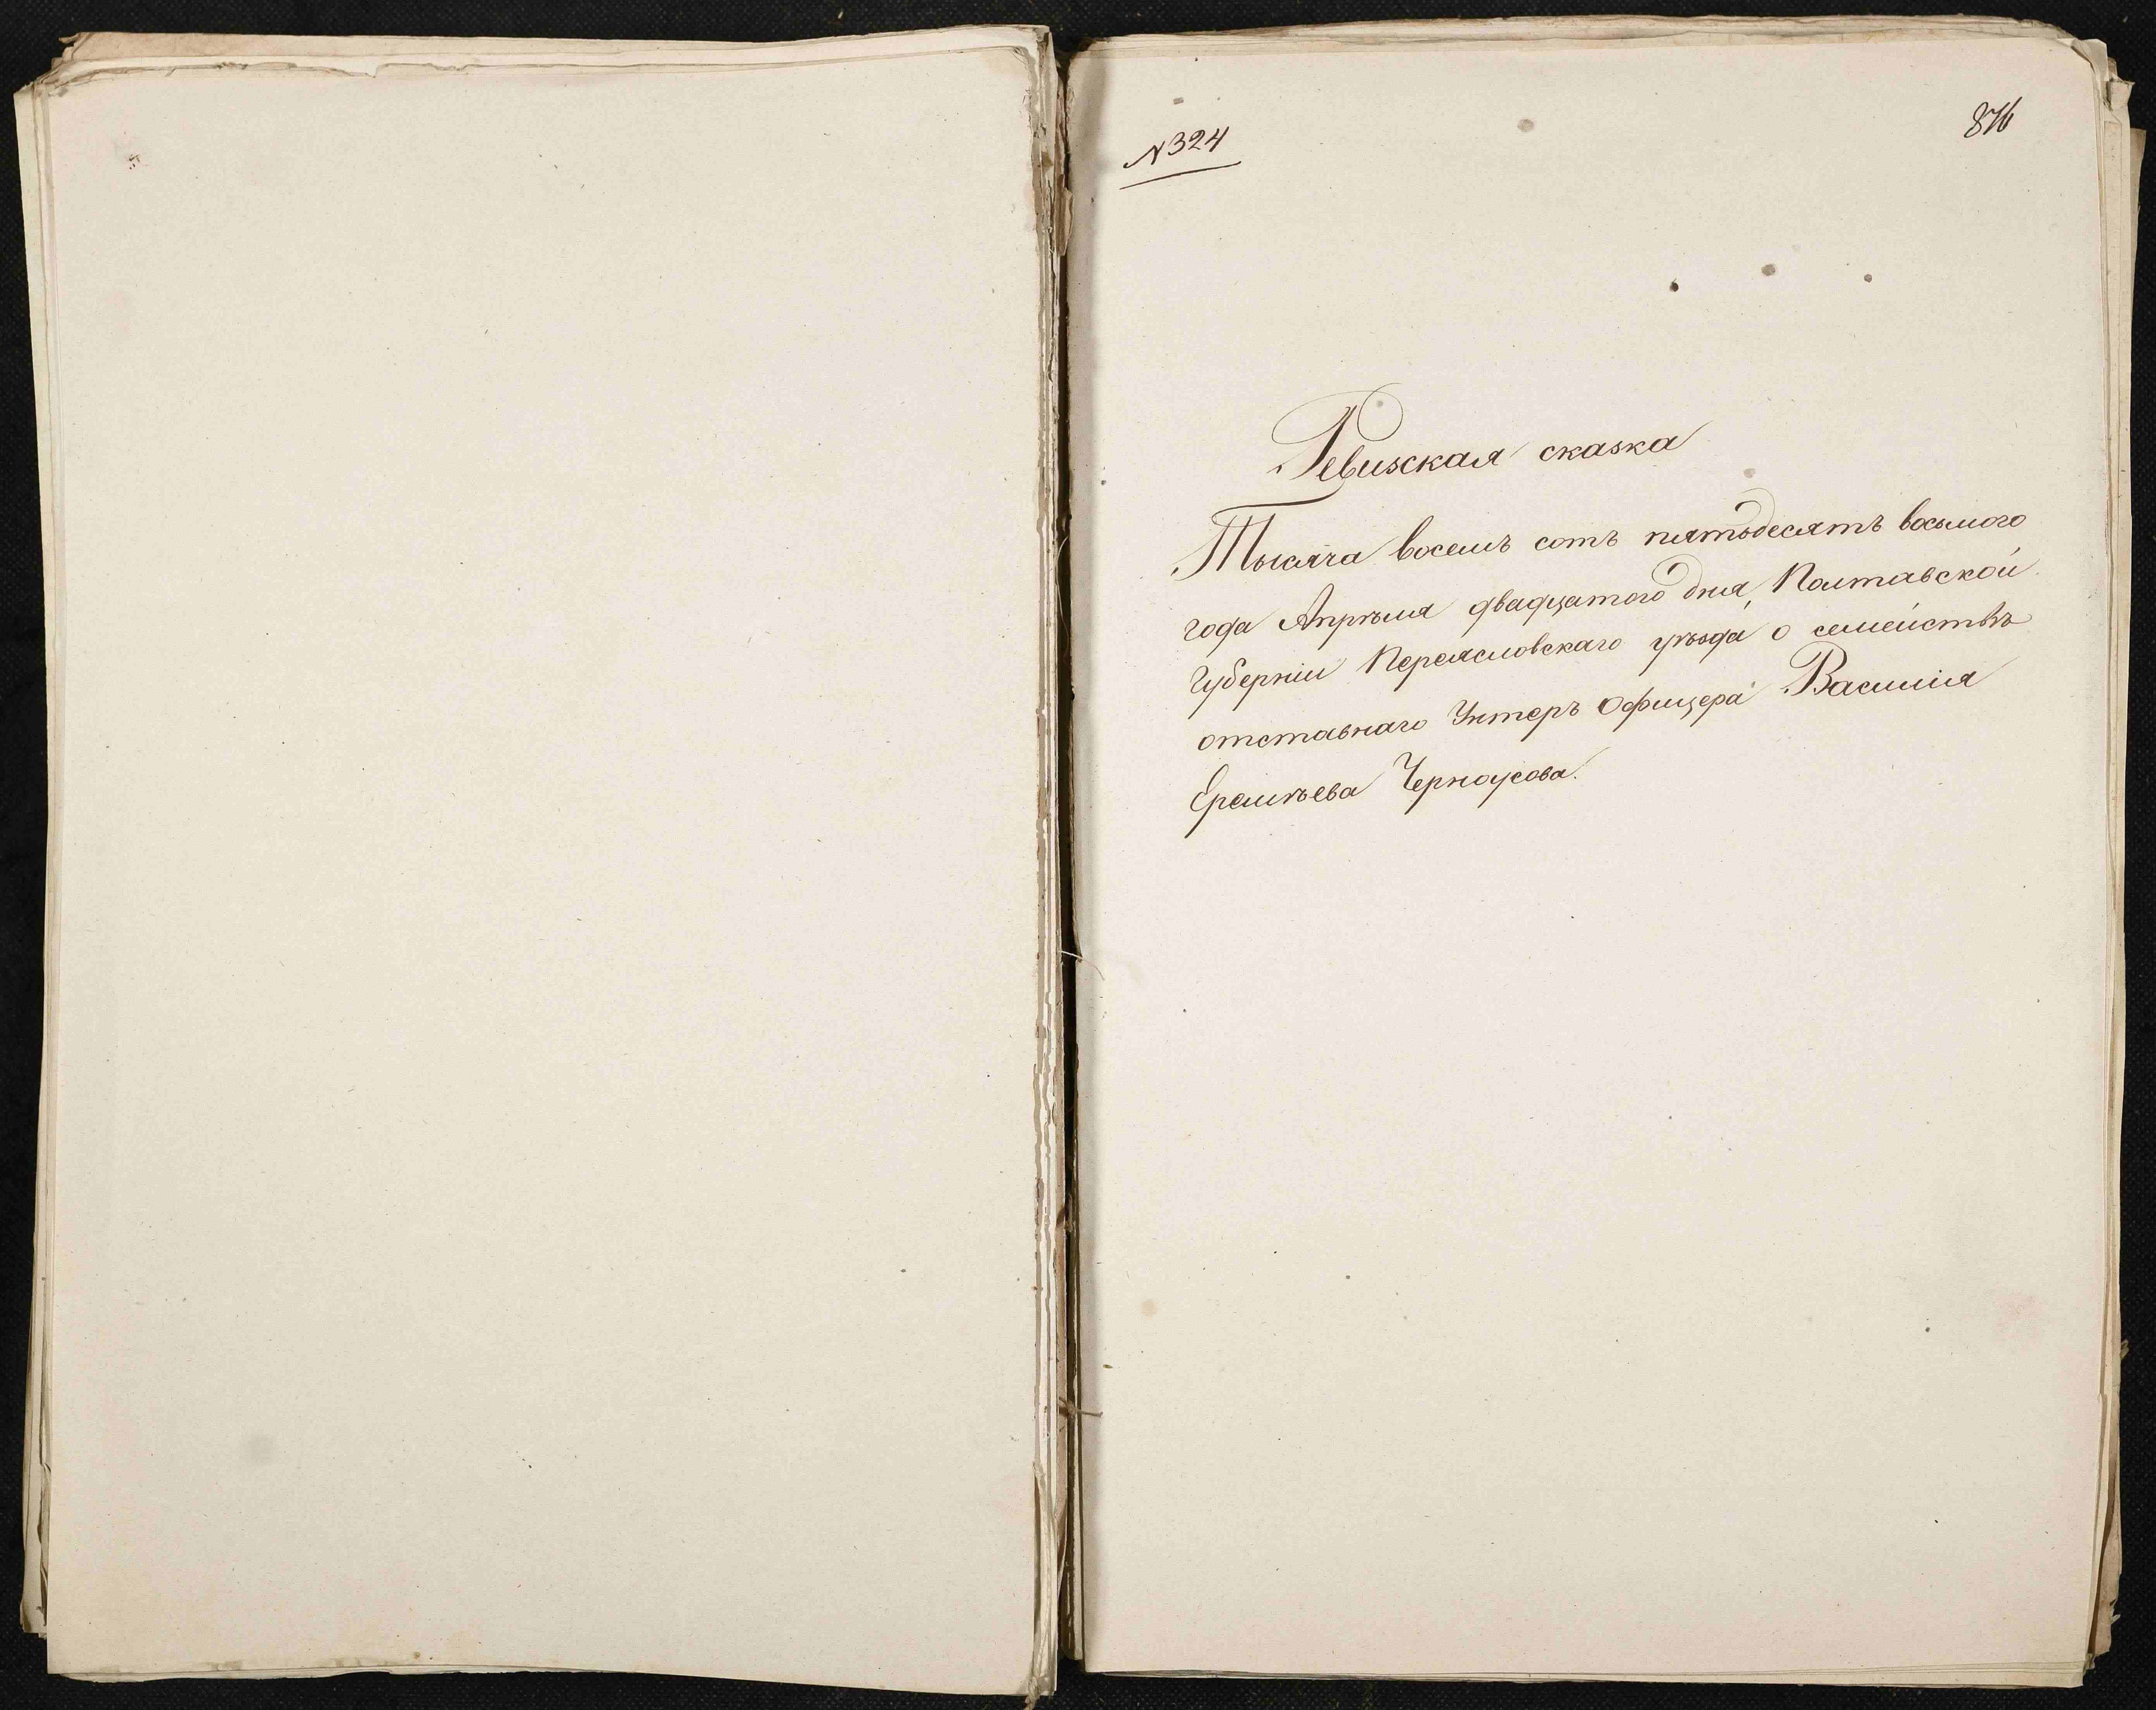 N 324
876
Ревизская сказка
Тысяча восемь сотъ пятьдесятъ восьмого
года Апрѣля двадцатого дня, Полтавской
Губерніи Переясловскаго уѣзда о семействѣ
отставнаго Унтеръ Офицера Василія
Еремѣева Черноусова.